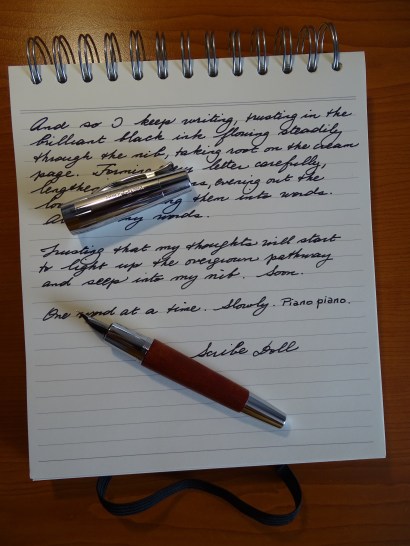 And so I keep writing, trusting in the
brilliant black ink flowing steadily
through the nib, taking root on the cream
page. letter carefully,
evening out the
them into words.
my words.
Trusting that my thoughts will start
to light up the overgrown pathway
and seep into my nib. Soon.
One word at a time. Slowly. Piano piano.
Scribe Doll